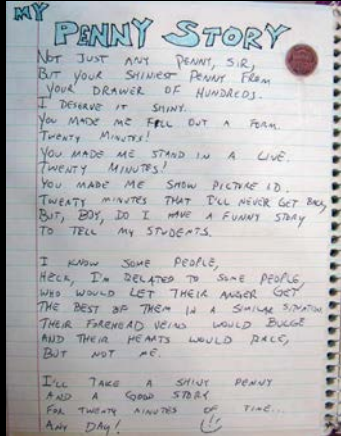 MY
PENNY STORY
NOT JUST ANY PENNY, SIR,
BUT YOUR SHINIEST PENNY FROM
YOUR DRAWER OF HUNDREDS.
I DESERVE IT SHINY.
YOU MADE ME FILL OUT A FORM.
TWENTY MINUTES!
YOU MADE ME STAND IN A LINE.
TWENTY MINUTES!
YOU MADE ME SHOW PICTURE ID.
TWENTY MINUTES THAT I'LL NEVER GET BACK,
BUT, BOY, DO I HAVE A FUNNY STORY
TO TELL MY STUDENTS.
I KNOW SOME PEOPLE,
HECK, I'M RELATED TO SOME PEOPLE,
WHO WOULD LET THEIR ANGER GET
THE BEST OF THEM IN A SIMILAR SITUATION,
THEIR FOREHEAD VEINS WOULD BULGE
AND THEIR HEARTS WOULD RACE,
BUT NOT ME.
I'LL TAKE A SHINY PENNY
AND A GOOD STORY
FOR TWENTY MINUTES OF TIME...
ANY DAY!